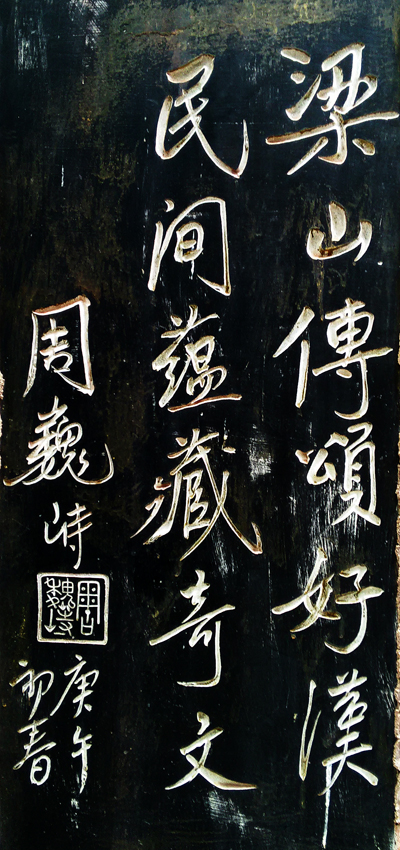 梁山傳頌好漢
民间蕴藏奇文
周巍峙
庚午
初春